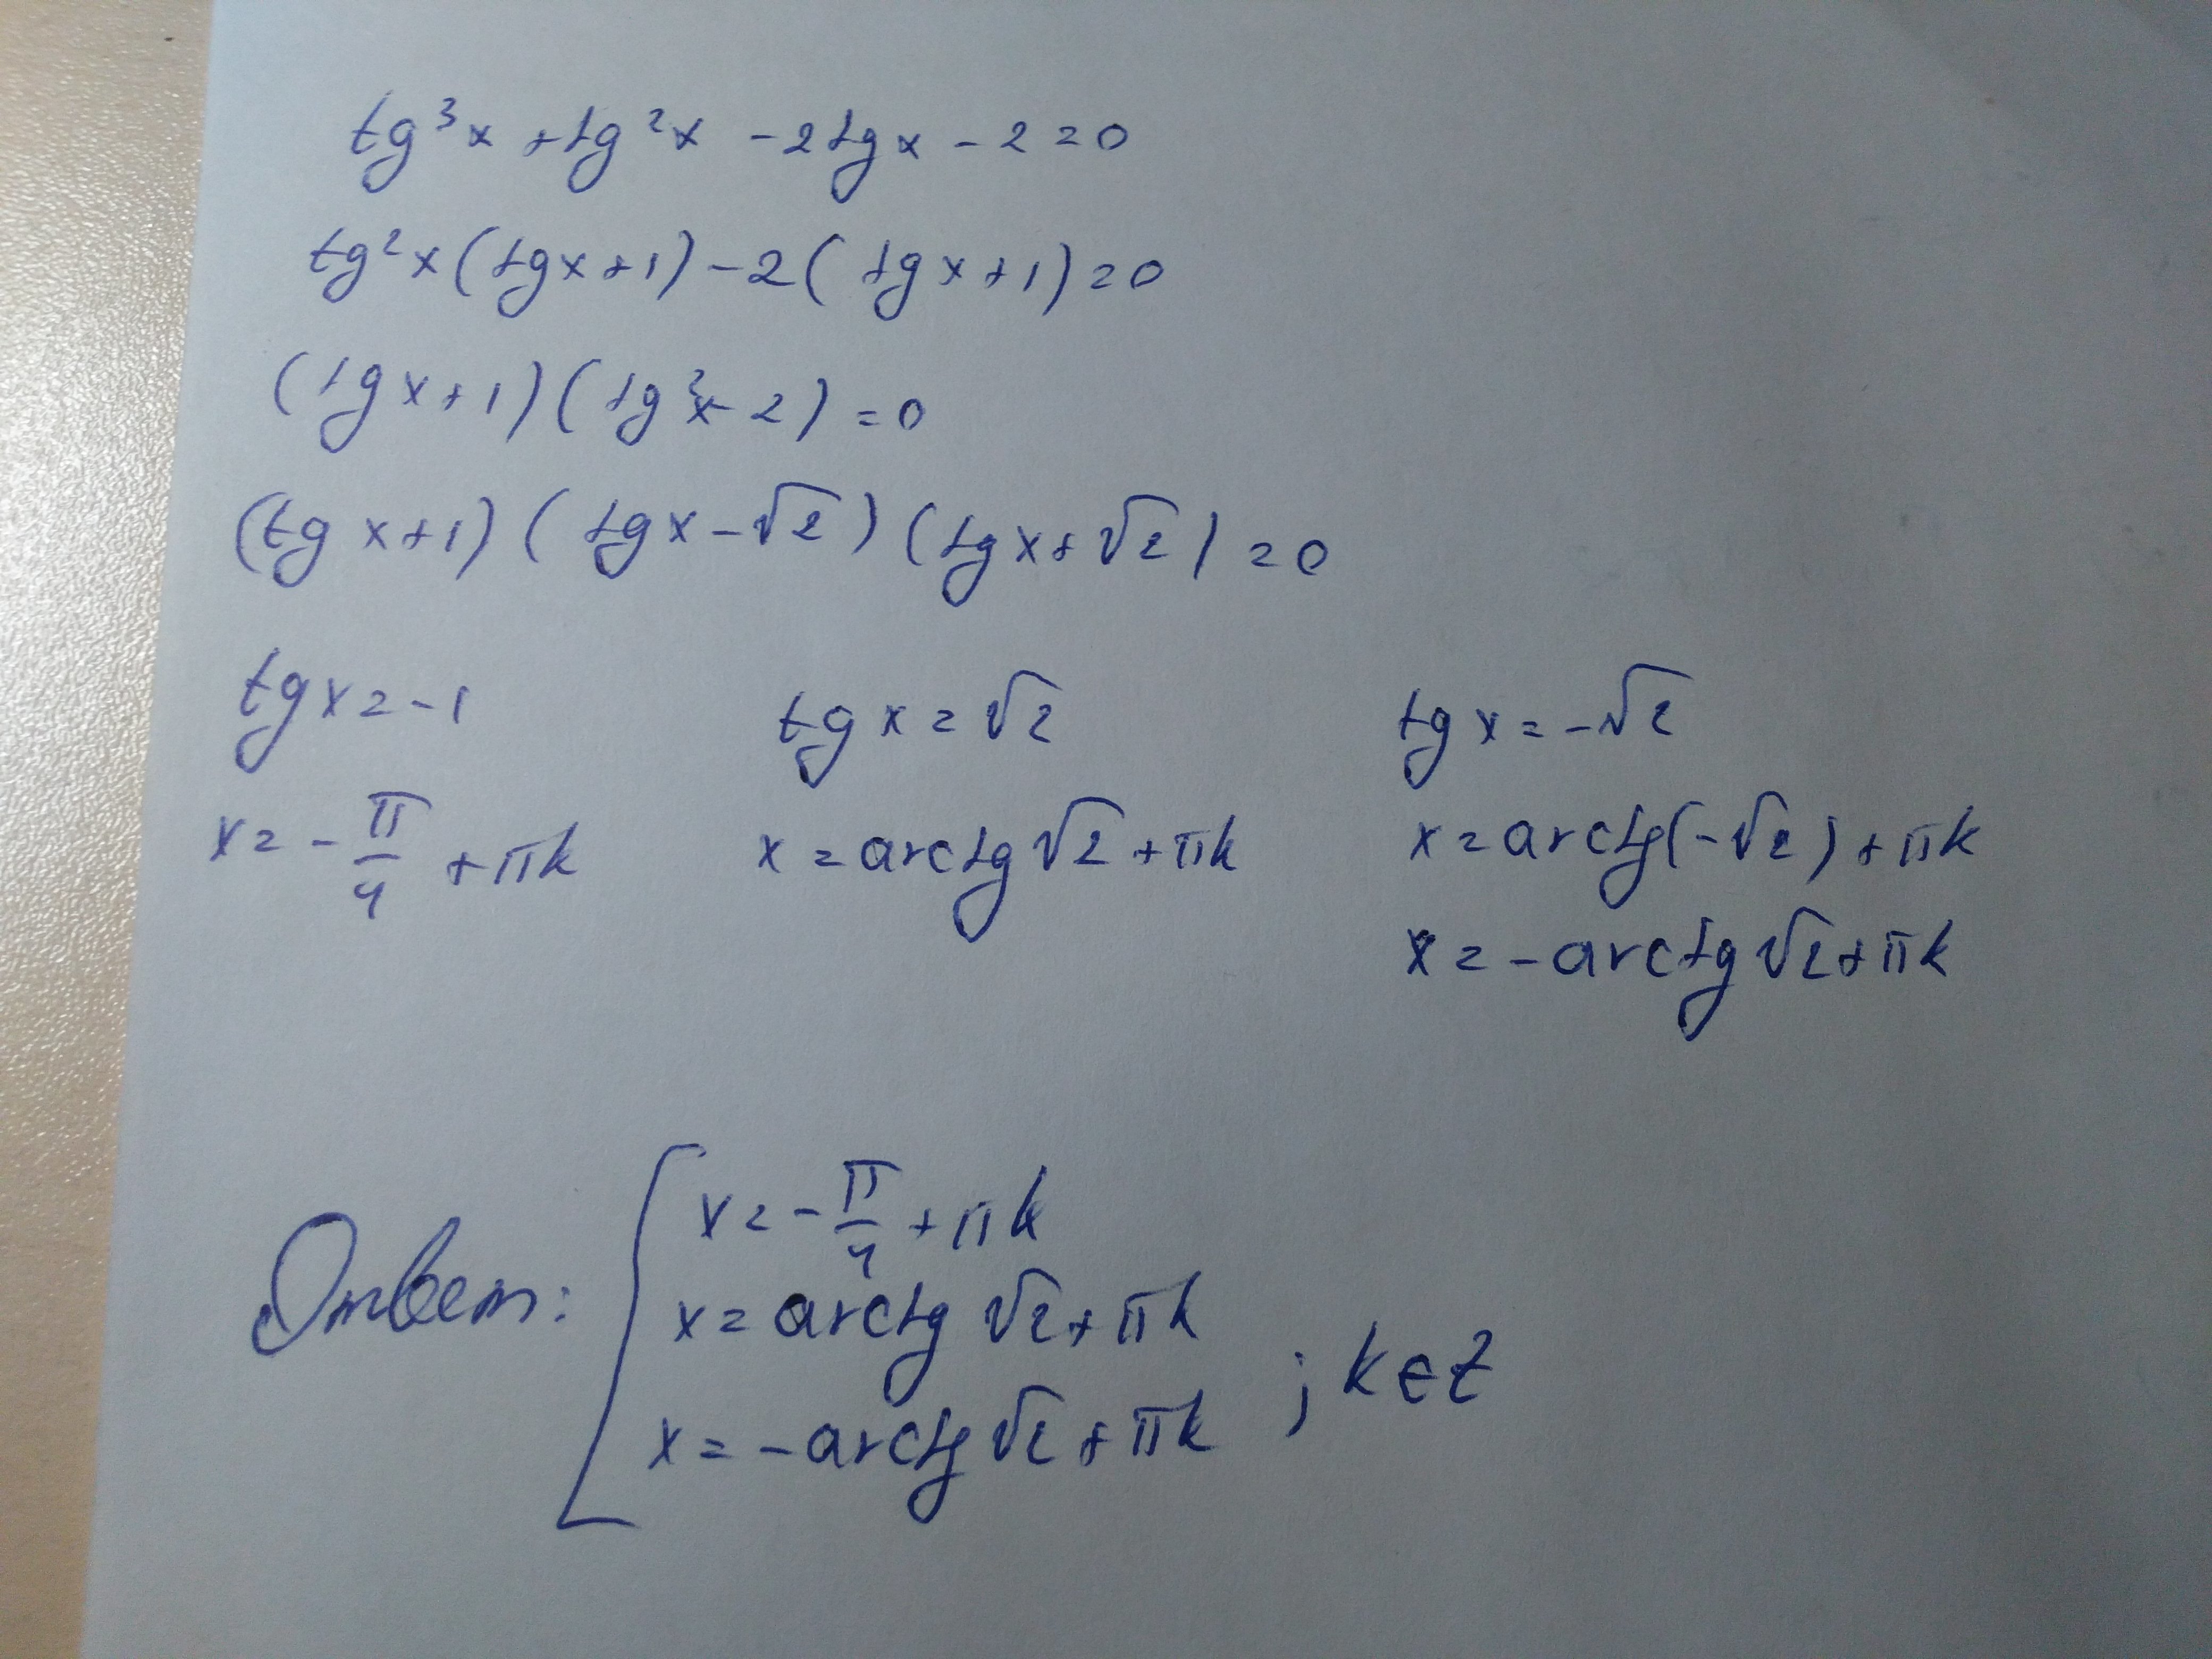 tg³x + tg²x - 2tgx - 2 = 0
tg²x(tgx+1) - 2(tgx+1) = 0
(tgx+1)(tg²x-2) = 0
(tgx+1)(tgx-√2)(tgx+√2) = 0
tgx = -1 tgx = √2 tgx = -√2
x = -π/4 + πk x = arctg√2 + πk x = arctg(-√2) + πk
x = -arctg√2 + πk
Ответ: [ x = -π/4 + πk
x = arctg√2 + πk
x = -arctg√2 + πk ; k∈Z